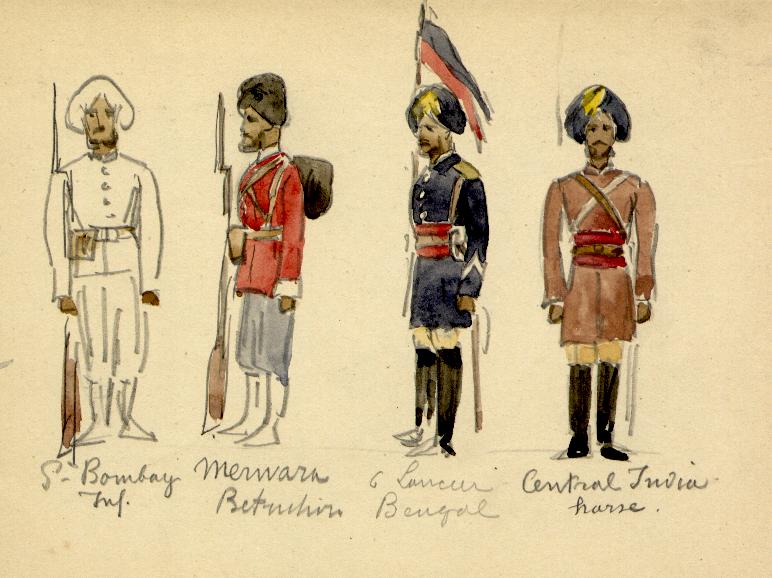 Bombay
Inf.
Merwara
6 Lancer
Bengal
Central India
horse.